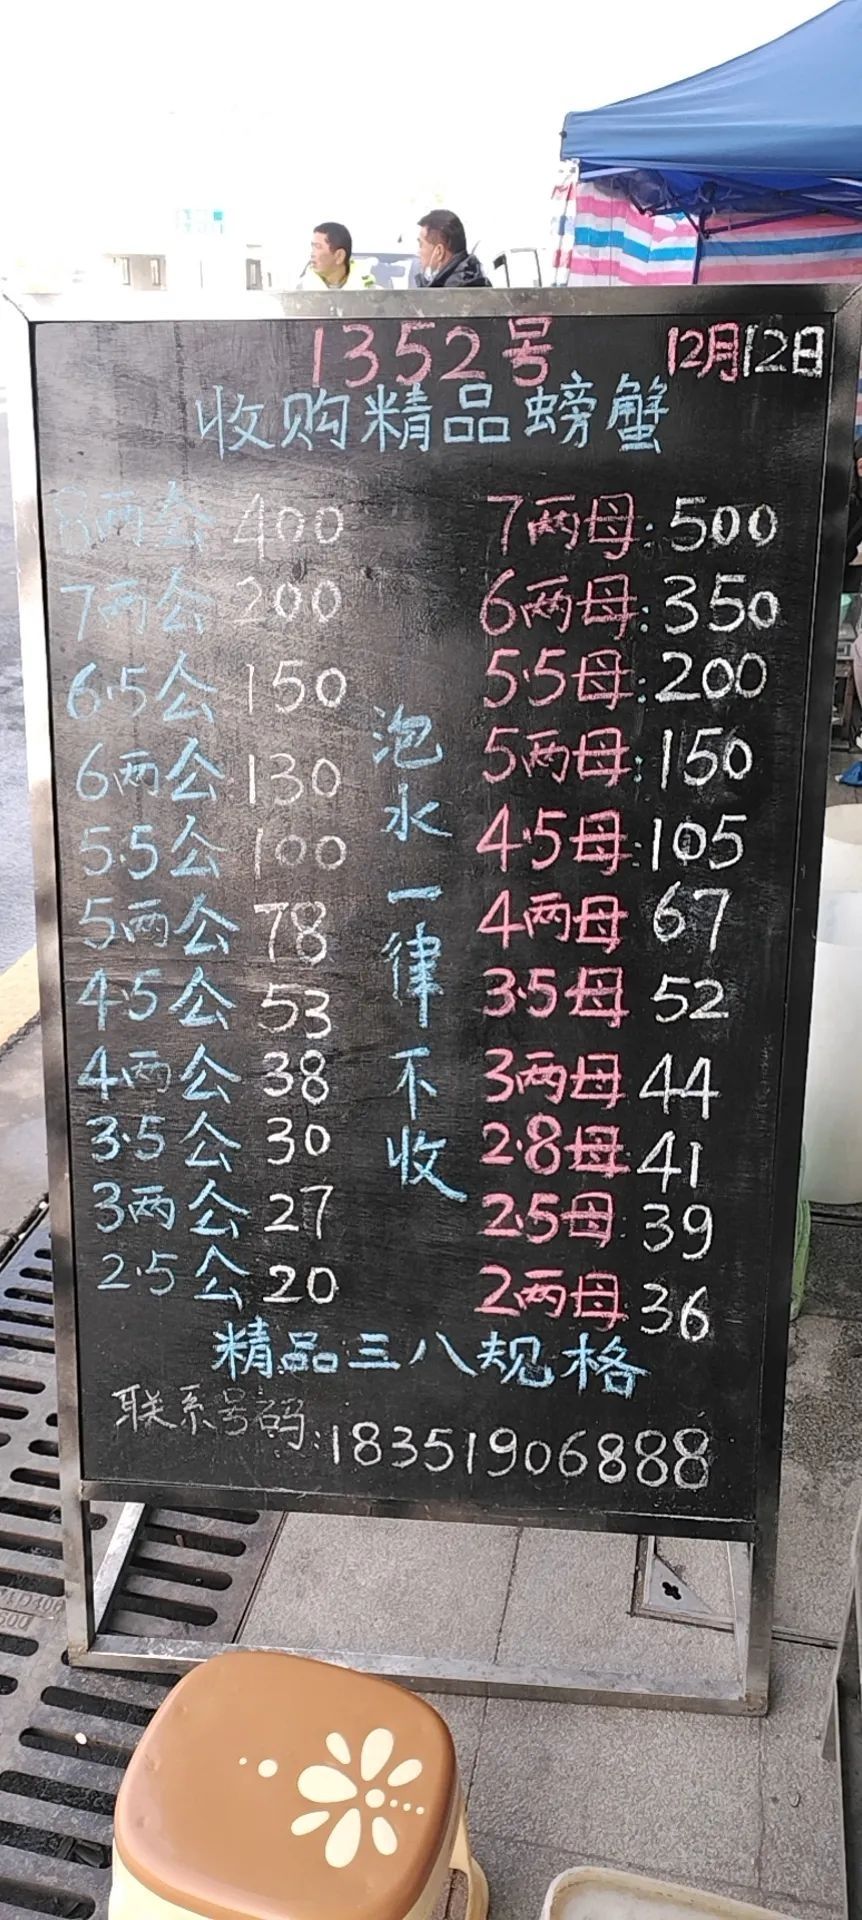 1352号 12月12日
收购精品螃蟹
8两公 400 7两母:500
7两公 200 6两母:350
6.5公 150 5.5母:200
6两公 130 5两母:150
5.5公 100 4.5母:105
5两公 78 4两母 67
4.5公 53 3.5母 52
4两公 38 3两母 44
3.5公 30 2.8母 41
3两公 27 2.5母 39
2.5公 20 2两母 36
泡水一律不收
精品三八规格
联系号码:18351906888